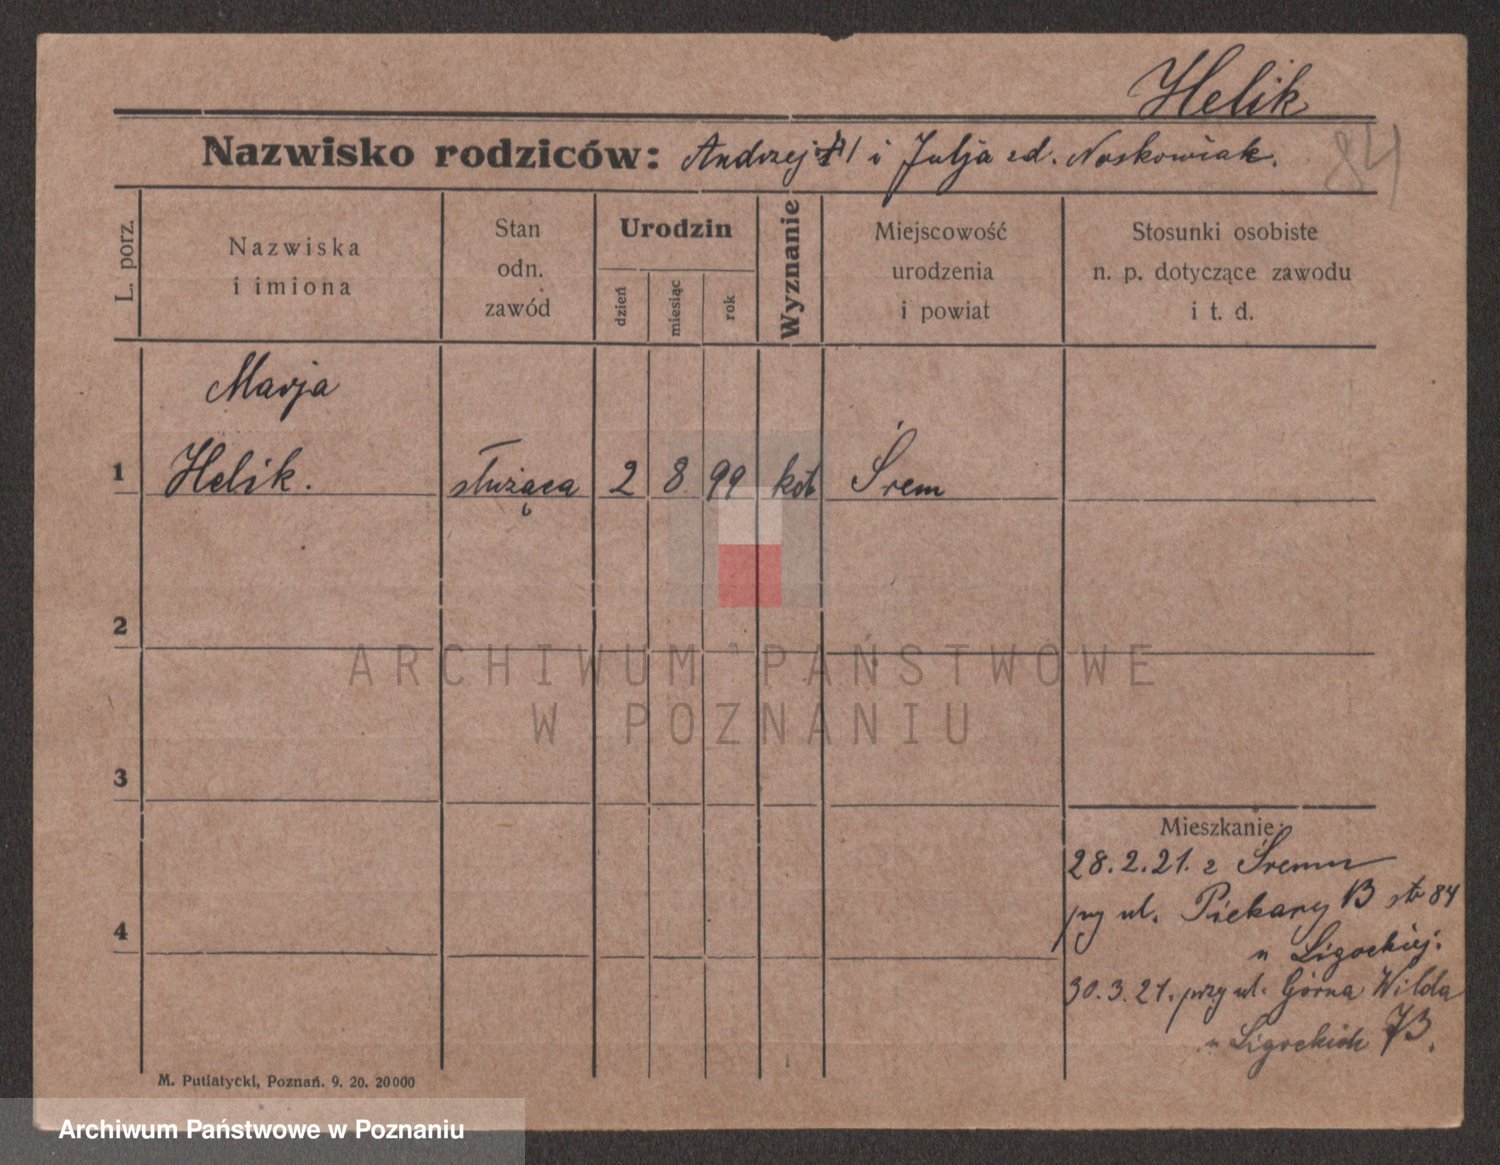 Helik
Nazwisko rodziców: Andrzej i Julja zd. Noskowiak.
84
L. porz.
Nazwiska
i imiona
Stan
odn.
zawód
Urodzin
dzień
miesiąc
rok
Wyznanie
Miejscowość
urodzenia
i powiat
Stosunki osobiste
n. p. dotyczące zawodu
i t. d.
Marja
1 Helik. służąca 2 8 99 kat Śrem
2
ARCHIWUM PAŃSTWOWE
W POZNANIU
3
Mieszkanie:
28.2.21. z Śremu
przy ul. Piekary 13 str 84
4
u Ligockiej.
30.3.21. przy ul. Górna Wilda
u Ligockich 73.
M. Putiatycki, Poznań. 9. 20. 20000
Archiwum Państwowe w Poznaniu